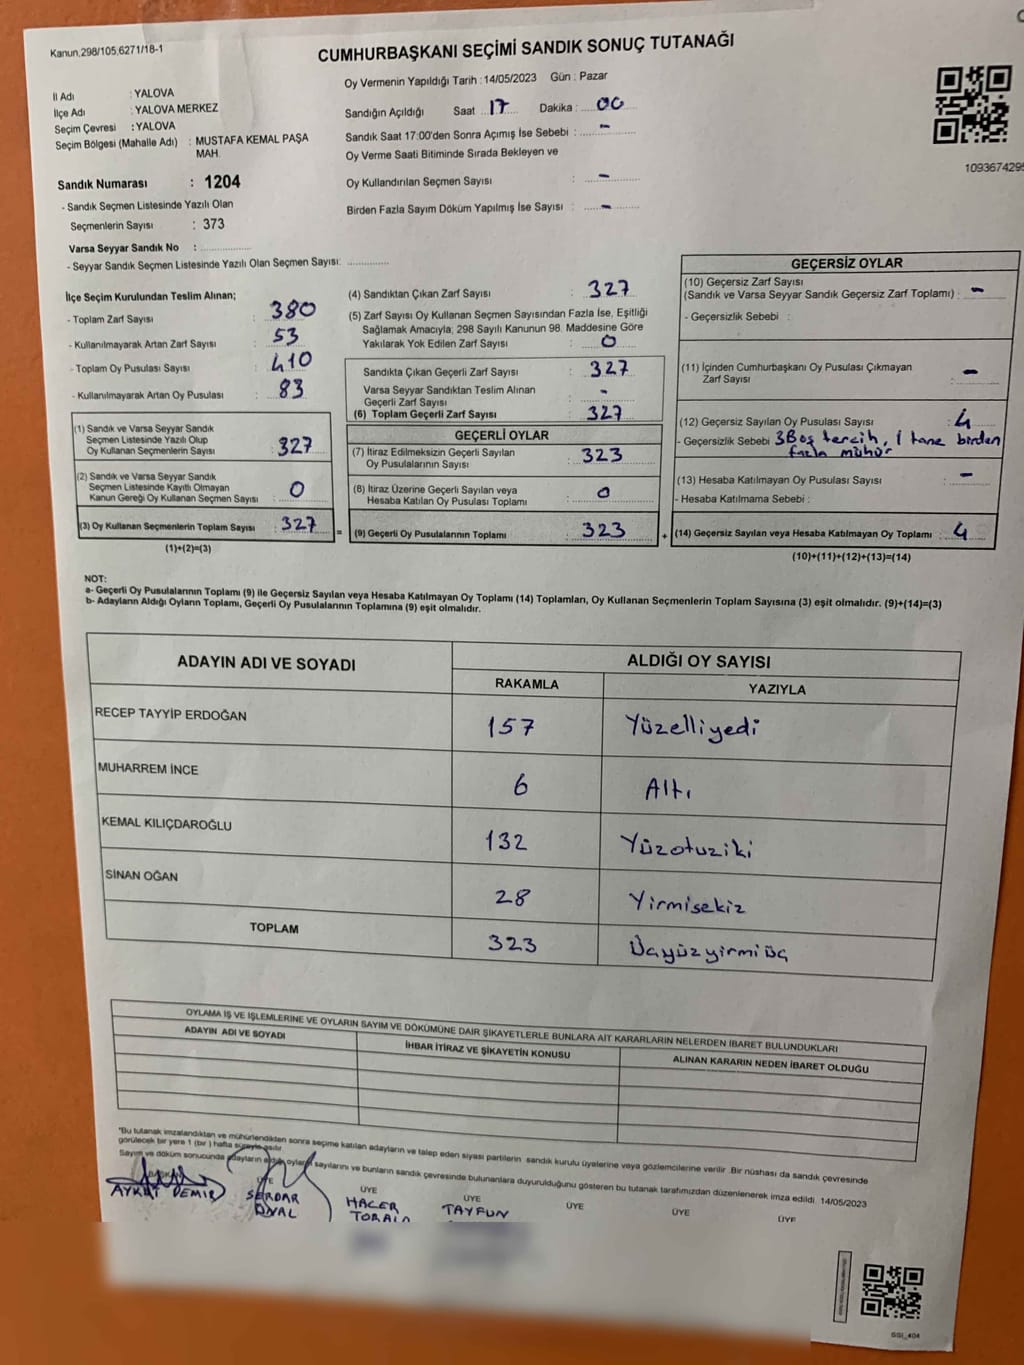 Kanun,298/105,6271/18-1
CUMHURBAŞKANI SEÇİMİ SANDIK SONUÇ TUTANAĞI
Oy Vermenin Yapıldığı Tarih : 14/05/2023 Gün : Pazar
İl Adı : YALOVA
İlçe Adı : YALOVA MERKEZ
Seçim Çevresi : YALOVA
Seçim Bölgesi (Mahalle Adı) : MUSTAFA KEMAL PAŞA
MAH.
Sandık Numarası : 1204
- Sandık Seçmen Listesinde Yazılı Olan
Seçmenlerin Sayısı : 373
Varsa Seyyar Sandık No :
- Seyyar Sandık Seçmen Listesinde Yazılı Olan Seçmen Sayısı:
Sandığın Açıldığı Saat 17 Dakika : 00
Sandık Saat 17:00'den Sonra Açımış İse Sebebi : -
Oy Verme Saati Bitiminde Sırada Bekleyen ve
Oy Kullandırılan Seçmen Sayısı : -
Birden Fazla Sayım Döküm Yapılmış İse Sayısı : -
1093674295
İlçe Seçim Kurulundan Teslim Alınan;
- Toplam Zarf Sayısı : 380
- Kullanılmayarak Artan Zarf Sayısı : 53
- Toplam Oy Pusulası Sayısı : 410
- Kullanılmayarak Artan Oy Pusulası : 83
(1) Sandık ve Varsa Seyyar Sandık
Seçmen Listesinde Yazılı Olup
Oy Kullanan Seçmenlerin Sayısı : 327
(2) Sandık ve Varsa Seyyar Sandık
Seçmen Listesinde Kayıtlı Olmayan
Kanun Gereği Oy Kullanan Seçmen Sayısı : 0
(3) Oy Kullanan Seçmenlerin Toplam Sayısı : 327 =
(1)+(2)=(3)
(4) Sandıktan Çıkan Zarf Sayısı : 327
(5) Zarf Sayısı Oy Kullanan Seçmen Sayısından Fazla İse, Eşitliği
Sağlamak Amacıyla; 298 Sayılı Kanunun 98. Maddesine Göre
Yakılarak Yok Edilen Zarf Sayısı : 0
Sandıkta Çıkan Geçerli Zarf Sayısı : 327
Varsa Seyyar Sandıktan Teslim Alınan
Geçerli Zarf Sayısı : -
(6) Toplam Geçerli Zarf Sayısı : 327
GEÇERLİ OYLAR
(7) İtiraz Edilmeksizin Geçerli Sayılan
Oy Pusulalarının Sayısı : 323
(8) İtiraz Üzerine Geçerli Sayılan veya
Hesaba Katılan Oy Pusulası Toplamı : 0
(9) Geçerli Oy Pusulalarının Toplamı : 323 +
GEÇERSİZ OYLAR
(10) Geçersiz Zarf Sayısı
(Sandık ve Varsa Seyyar Sandık Geçersiz Zarf Toplamı) : -
- Geçersizlik Sebebi :
(11) İçinden Cumhurbaşkanı Oy Pusulası Çıkmayan
Zarf Sayısı : -
(12) Geçersiz Sayılan Oy Pusulası Sayısı : 4
- Geçersizlik Sebebi 3 Boş tercih, 1 tane birden
fazla mühür
(13) Hesaba Katılmayan Oy Pusulası Sayısı : -
- Hesaba Katılmama Sebebi :
(14) Geçersiz Sayılan veya Hesaba Katılmayan Oy Toplamı : 4
(10)+(11)+(12)+(13)=(14)
NOT:
a- Geçerli Oy Pusulalarının Toplamı (9) ile Geçersiz Sayılan veya Hesaba Katılmayan Oy Toplamı (14) Toplamları, Oy Kullanan Seçmenlerin Toplam Sayısına (3) eşit olmalıdır. (9)+(14)=(3)
b- Adayların Aldığı Oyların Toplamı, Geçerli Oy Pusulalarının Toplamına (9) eşit olmalıdır.
ADAYIN ADI VE SOYADI ALDIĞI OY SAYISI
RAKAMLA YAZIYLA
RECEP TAYYİP ERDOĞAN 157 Yüzelliyedi
MUHARREM İNCE 6 Altı
KEMAL KILIÇDAROĞLU 132 Yüzotuziki
SİNAN OĞAN 28 Yirmisekiz
TOPLAM 323 Üçyüzyirmiüç
OYLAMA İŞ VE İŞLEMLERİNE VE OYLARIN SAYIM VE DÖKÜMÜNE DAİR ŞİKAYETLERLE BUNLARA AİT KARARLARIN NELERDEN İBARET BULUNDUKLARI
ADAYIN ADI VE SOYADI İHBAR İTİRAZ VE ŞİKAYETİN KONUSU ALINAN KARARIN NEDEN İBARET OLDUĞU
*Bu tutanak imzalandıktan ve mühürlendikten sonra seçime katılan adayların ve talep eden siyasi partilerin sandık kurulu üyelerine veya gözlemcilerine verilir. Bir nüshası da sandık çevresinde
görülecek bir yere 1 (bir) hafta süreyle asılır.
Sayım ve döküm sonucunda adayların aldığı oyların sayılarını ve bunların sandık çevresinde bulunanlara duyurulduğunu gösteren bu tutanak tarafımızdan düzenlenerek imza edildi. 14/05/2023
ÜYE ÜYE ÜYE ÜYE ÜYE
DEMİR SERDAR HACER TAYFUN
GSI_404